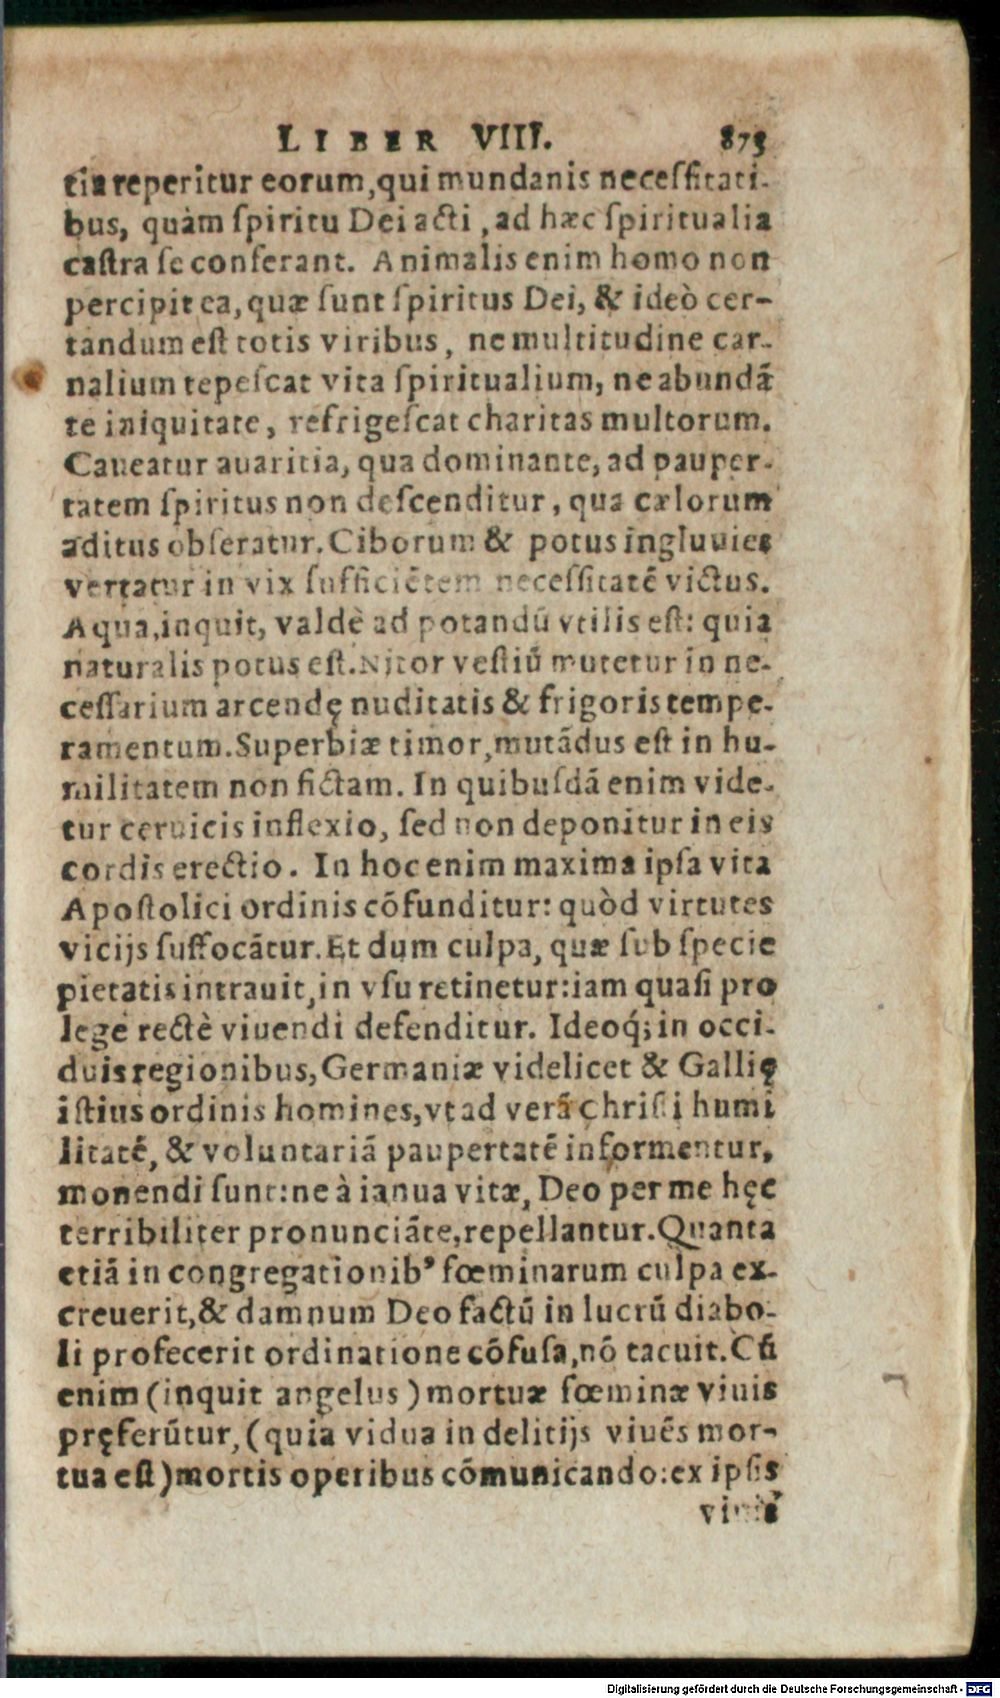 LIBER VIII. 873
tia reperitur eorum, qui mundanis necessitati-
bus, quàm spiritu Dei acti, ad hæc spiritualia
castra se conferant. Animalis enim homo non
percipit ea, quæ sunt spiritus Dei, & ideò cer-
tandum est totis viribus, ne multitudine car-
nalium tepescat vita spiritualium, ne abundã
te iniquitate, refrigescat charitas multorum.
Caueatur auaritia, qua dominante, ad pauper-
tatem spiritus non descenditur, qua cælorum
aditus obseratur. Ciborum & potus ingluuies
vertatur in vix sufficiẽtem necessitatẽ victus.
Aqua, inquit, valdè ad potandũ vtilis est: quia
naturalis potus est. Nitor vestiũ mutetur in ne-
cessarium arcendę nuditatis & frigoris tempe-
ramentum. Superbiæ timor, mutãdus est in hu-
militatem non fictam. In quibusdã enim vide-
tur ceruicis inflexio, sed non deponitur in eis
cordis erectio. In hoc enim maxima ipsa vita
Apostolici ordinis cõfunditur: quòd virtutes
vicijs suffocãtur. Et dum culpa, quæ sub specie
pietatis intrauit, in vsu retinetur: iam quasi pro
lege rectè viuendi defenditur. Ideoq́; in occi-
duis regionibus, Germaniæ videlicet & Gallię
istius ordinis homines, vt ad verã Christi humi
litatẽ, & voluntariã paupertatẽ informentur,
monendi sunt: ne à ianua vitæ, Deo per me hęc
terribiliter pronunciãte, repellantur. Quanta
etiã in congregationib⁹ fœminarum culpa ex-
creuerit, & damnum Deo factũ in lucrũ diabo-
li profecerit ordinatione cõfusa, nõ tacuit. Cũ
enim (inquit angelus) mortuæ fœminæ viuis
pręferũtur, (quia vidua in delitijs viuẽs mor-
tua est) mortis operibus cõmunicando: ex ipsis
viuis
Digitalisierung gefördert durch die Deutsche Forschungsgemeinschaft - DFG